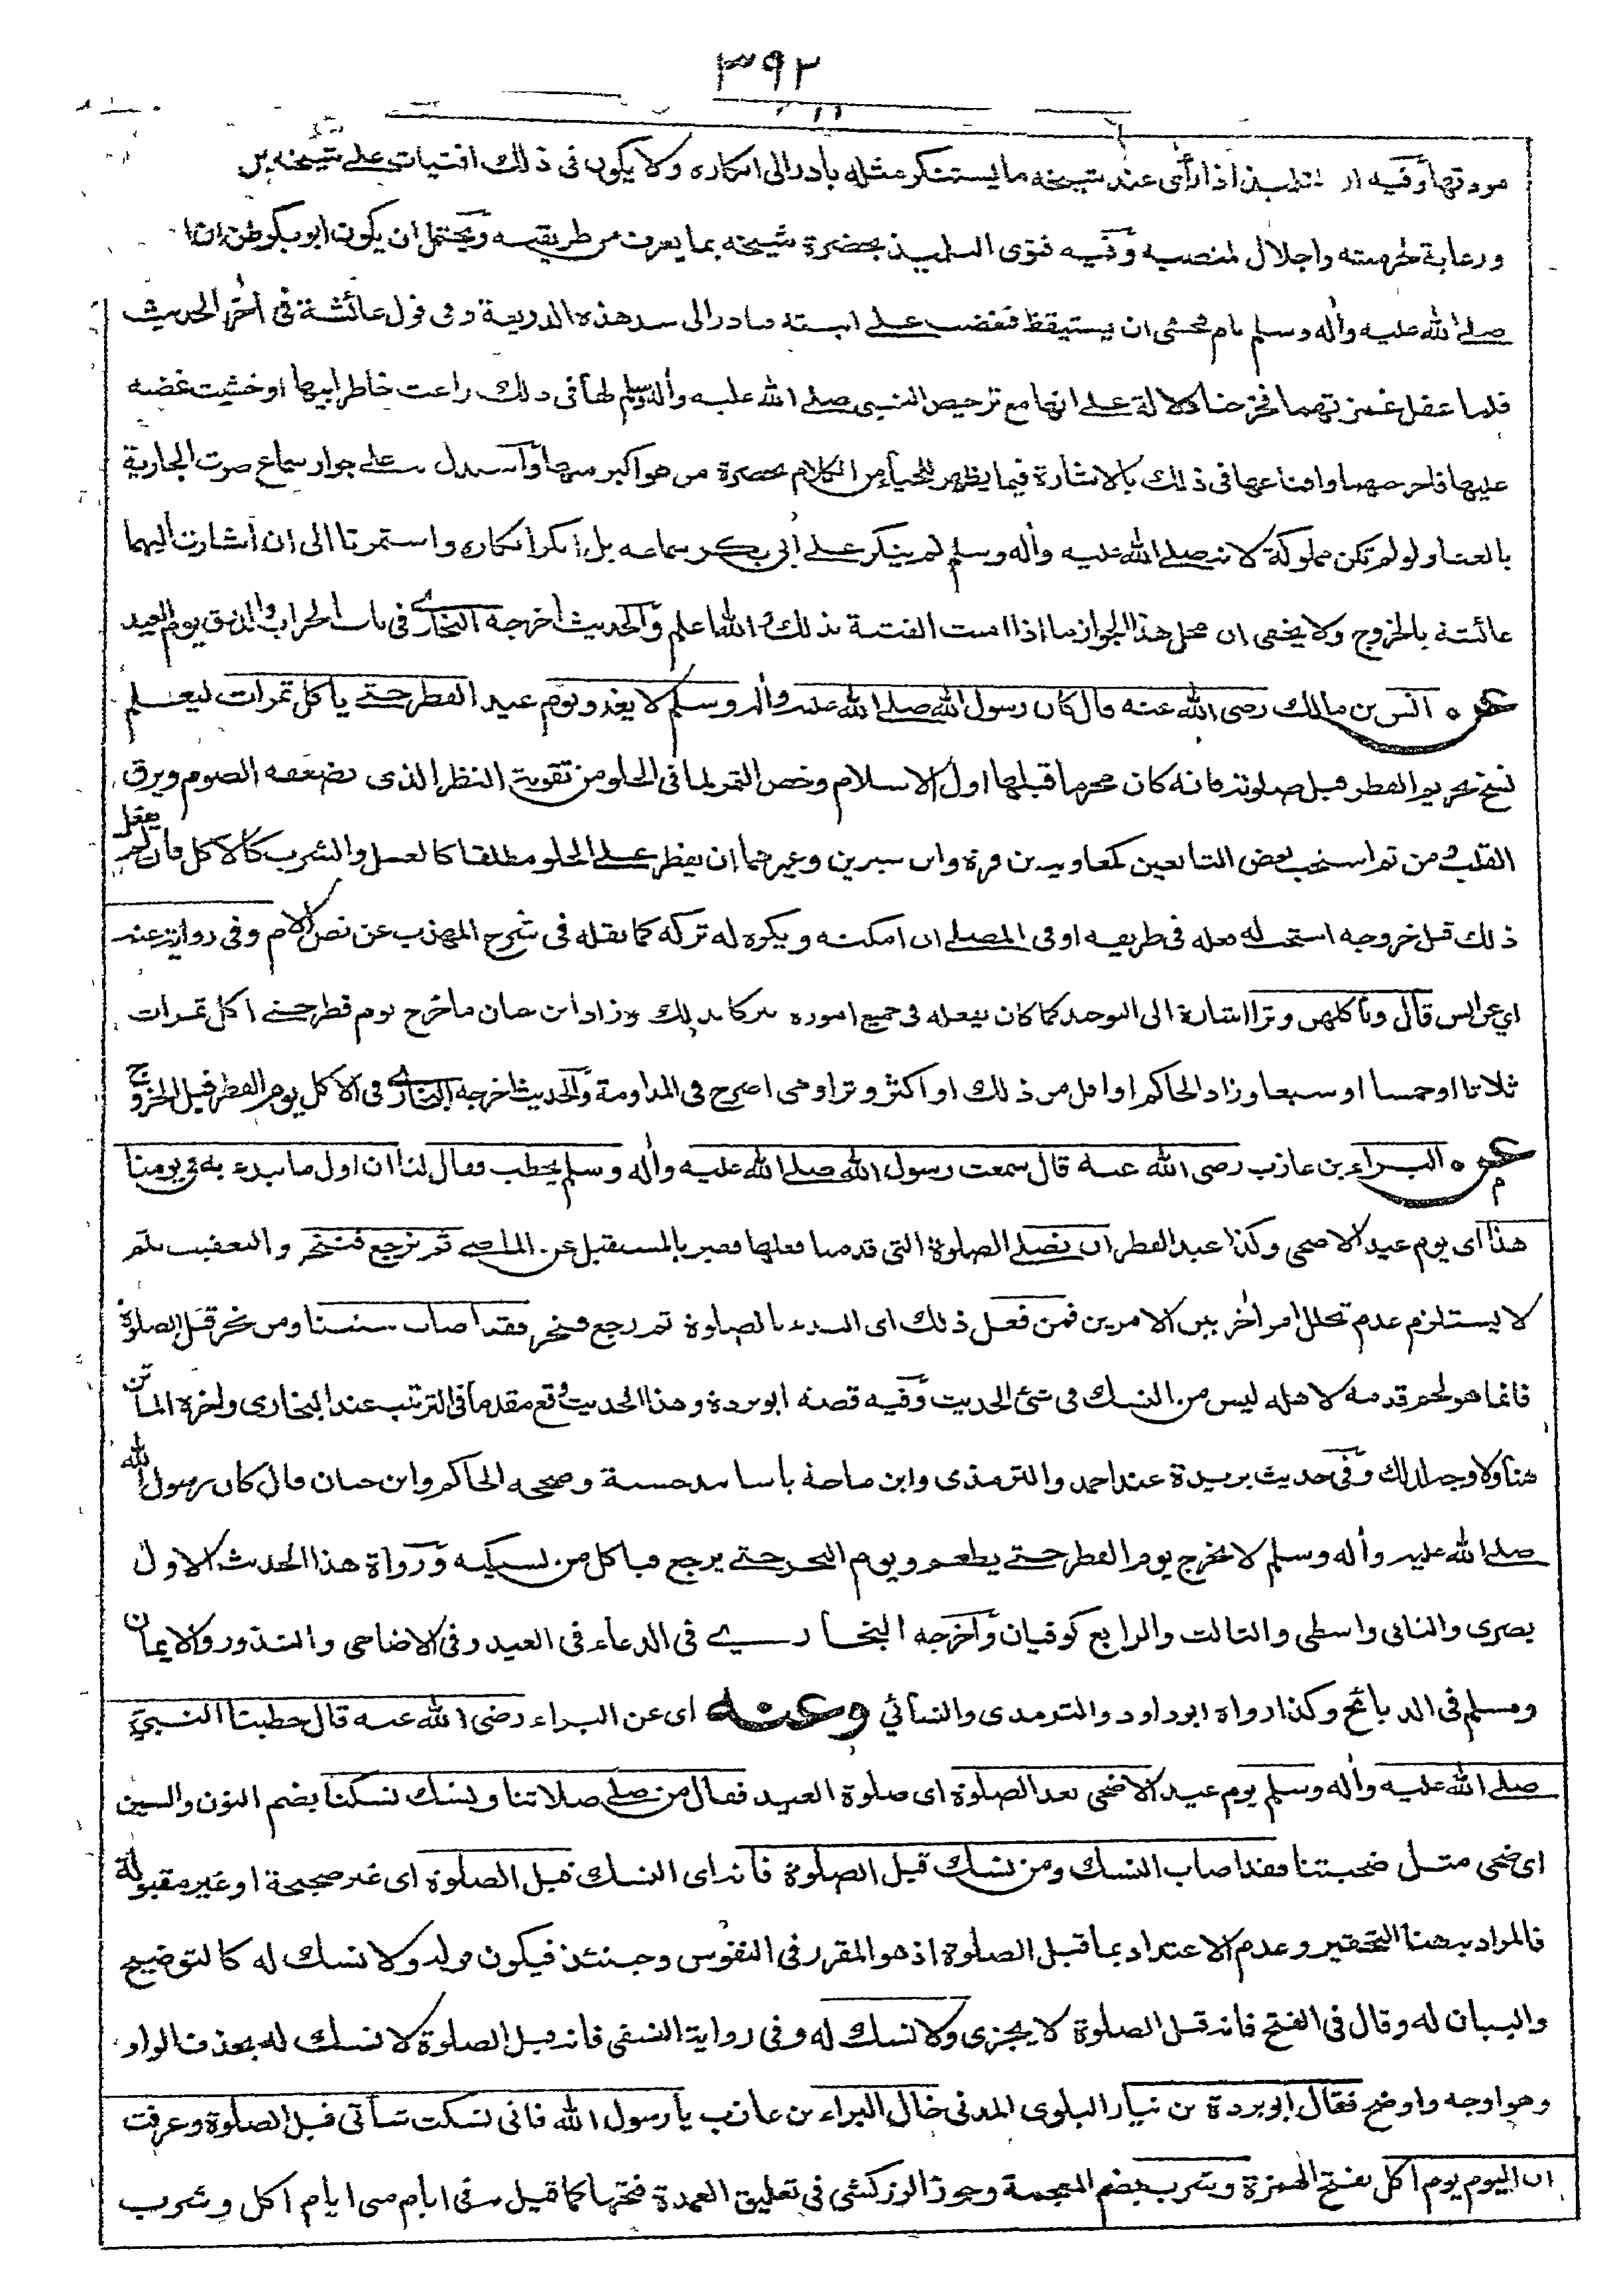 ٣٩٢
مودتها وفيه ان التلميذ اذا رأى عند شيخه ما يستنكر مثله بادر الى انكاره ولا يكون فى ذلك افتيات على شيخه بل
ورعاية لحرمته واجلال لمنصبه وفيه فتوى التلميذ بحضرة شيخه بما يعرف من طريقه ويحتمل ان يكون ابو بكر ظن ان
صلى الله عليه وأله وسلم نام فخشى ان يستيقظ فغضب على ابنته فبادر الى سد هذه الذريعة وفى قول عائشة فى أخر الحديث
فلما غفل غمزتهما فخرجتا دلالة على انها مع ترخيص النبى صلى الله عليه وأله وسلم لها فى ذلك راعت خاطر ابيها او خشيت غضبه
عليها فاخرجتهما واقتناعها فى ذلك بالاشارة فيما يظهر للحياء من الكلام بحضرة من هو اكبر منها واستدل به على جواز سماع صوت الجارية
بالغناء ولو لم تكن مملوكة لانه صلى الله عليه وأله وسلم لم ينكر على أبى بكر سماعه بل انكر انكاره واستمرتا الى ان اشارت اليهما
عائشة بالخروج ولا يخفى ان محل هذا الجواز ما اذا امنت الفتنة بذلك والله اعلم والحديث أخرجه البخارى فى باب الحراب والدرق يوم العيد
عن ٥ انس بن مالك رضى الله عنه قال كان رسول الله صلى الله عليه وأله وسلم لا يغدو يوم عيد الفطر حتى ياكل تمرات ليعلم
نسخ تحريم الفطر قبل صلوته فانه كان محرما قبلها اول الاسلام وخص التمر لما فى الحلو من تقوية النظر الذى يضعفه الصوم ويرق
القلب ومن ثم استحب بعض التابعين كمعاوية بن قرة وابن سيرين وغيرهما ان يفطر على الحلو مطلقا كالعسل والشرب كالاكل فان لم يفعل
ذلك قبل خروجه استحب له فعله فى طريقه او فى المصلى ان امكنه ويكره له تركه كما نقله فى شرح المهذب عن نص الام وفى رواية عنه
اي عن انس قال ويأكلهن وترا اشارة الى التوحد كما كان يفعله فى جميع اموره تبركا بذلك وزاد ابن حبان ما خرج يوم فطر حتى اكل تمرات
ثلاثا او خمسا او سبعا وزاد الحاكم او اقل من ذلك او اكثر وترا وهى اصرح فى المداومة والحديث اخرجه البخارى فى الاكل يوم الفطر قبل الخروج
عن ٥ البراء بن عازب رضى الله عنه قال سمعت رسول الله صلى الله عليه وأله وسلم يخطب فقال لنا ان اول ما نبدء به فى يومنا
هذا اى يوم عيد الاضحى وكذا عيد الفطر ان نصلى الصلوة التى قدمنا فعلها فعبر بالمستقبل عن الماضى ثم نرجع فننحر والتعقيب بثم
لا يستلزم عدم تخلل امر أخر بين الامرين فمن فعل ذلك اى البدء بالصلوة ثم رجع فنحر فقد اصاب سنتنا ومن نحر قبل الصلوة
فانما هو لحم قدمه لاهله ليس من النسك فى شئ الحديث وفيه قصة ابو بردة وهذا الحديث وقع مقدما فى الترتيب عند البخارى واخره الماتن
هنا ولا وجه لذلك وفى حديث بريدة عند احمد والترمذى وابن ماجة باسانيد حسنة وصححه الحاكم وابن حبان قال كان رسول الله
صلى الله عليه وأله وسلم لا يخرج يوم الفطر حتى يطعم ويوم النحر حتى يرجع فياكل من نسيكته ورواة هذا الحديث الاول
بصرى والثانى واسطى والثالث والرابع كوفيان وأخرجه البخارى فى الدعاء فى العيد وفى الاضاحى والنذور والايمان
ومسلم فى الذبائح وكذا رواه ابو داود والترمذى والنسائي وعنه اى عن البراء رضى الله عنه قال خطبنا النبى
صلى الله عليه وأله وسلم يوم عيد الاضحى بعد الصلوة اى صلوة العيد فقال من صلى صلاتنا ونسك نسكنا بضم النون والسين
اى ضحى مثل ضحيتنا فقد اصاب النسك ومن نسك قبل الصلوة فانه اى النسك قبل الصلوة اى غير صحيحة او غير مقبولة
فالمراد به هنا التحقير وعدم الاعتداد بما قبل الصلوة اذ هو المقرر فى النفوس وحينئذ فيكون قوله ولا نسك له كالتوضيح
والبيان له وقال فى الفتح فانه قبل الصلوة لا يجزى ولا نسك له وفى رواية النسفى فانه قبل الصلوة لا نسك له بحذف الواو
وهو اوجه واوضح فقال ابو بردة بن نيار البلوى المدنى خال البراء بن عازب يا رسول الله فانى نسكت شأتى قبل الصلوة وعرفت
ان اليوم يوم اكل بفتح الهمزة وشرب بضم المعجمة وجوز الزركشى فى تعليق العمدة فتحها كما قيل فى ايام منى ايام اكل وشرب